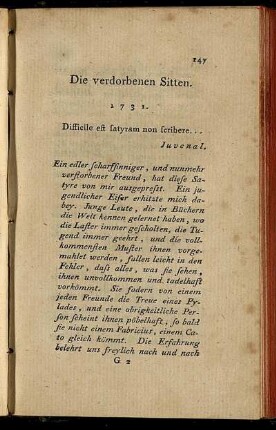 147
Die verdorbenen Sitten.
1731.
Difficile est satyram non scribere...
Juvenal.
Ein edler scharfsinniger, und nunmehr
verstorbener Freund, hat diese Sa-
tyre von mir ausgepreßt. Ein ju-
gendlicher Eifer erhitzte mich da-
bey. Junge Leute, die in Büchern
die Welt kennen gelernet haben, wo
die Laster immer gescholten, die Tu-
gend immer geehrt, und die voll-
kommensten Muster ihnen vorge-
mahlet werden, fallen leicht in den
Fehler, daß alles, was sie sehen,
ihnen unvollkommen und tadelhaft
vorkömmt. Sie fodern von einem
jeden Freunde die Treue eines Py-
lades, und eine obrigkeitliche Per-
son scheint ihnen pöbelhaft, so bald
sie nicht einem Fabricius, einem Ca-
to gleich kömmt. Die Erfahrung
belehrt uns freylich nach und nach
G 2